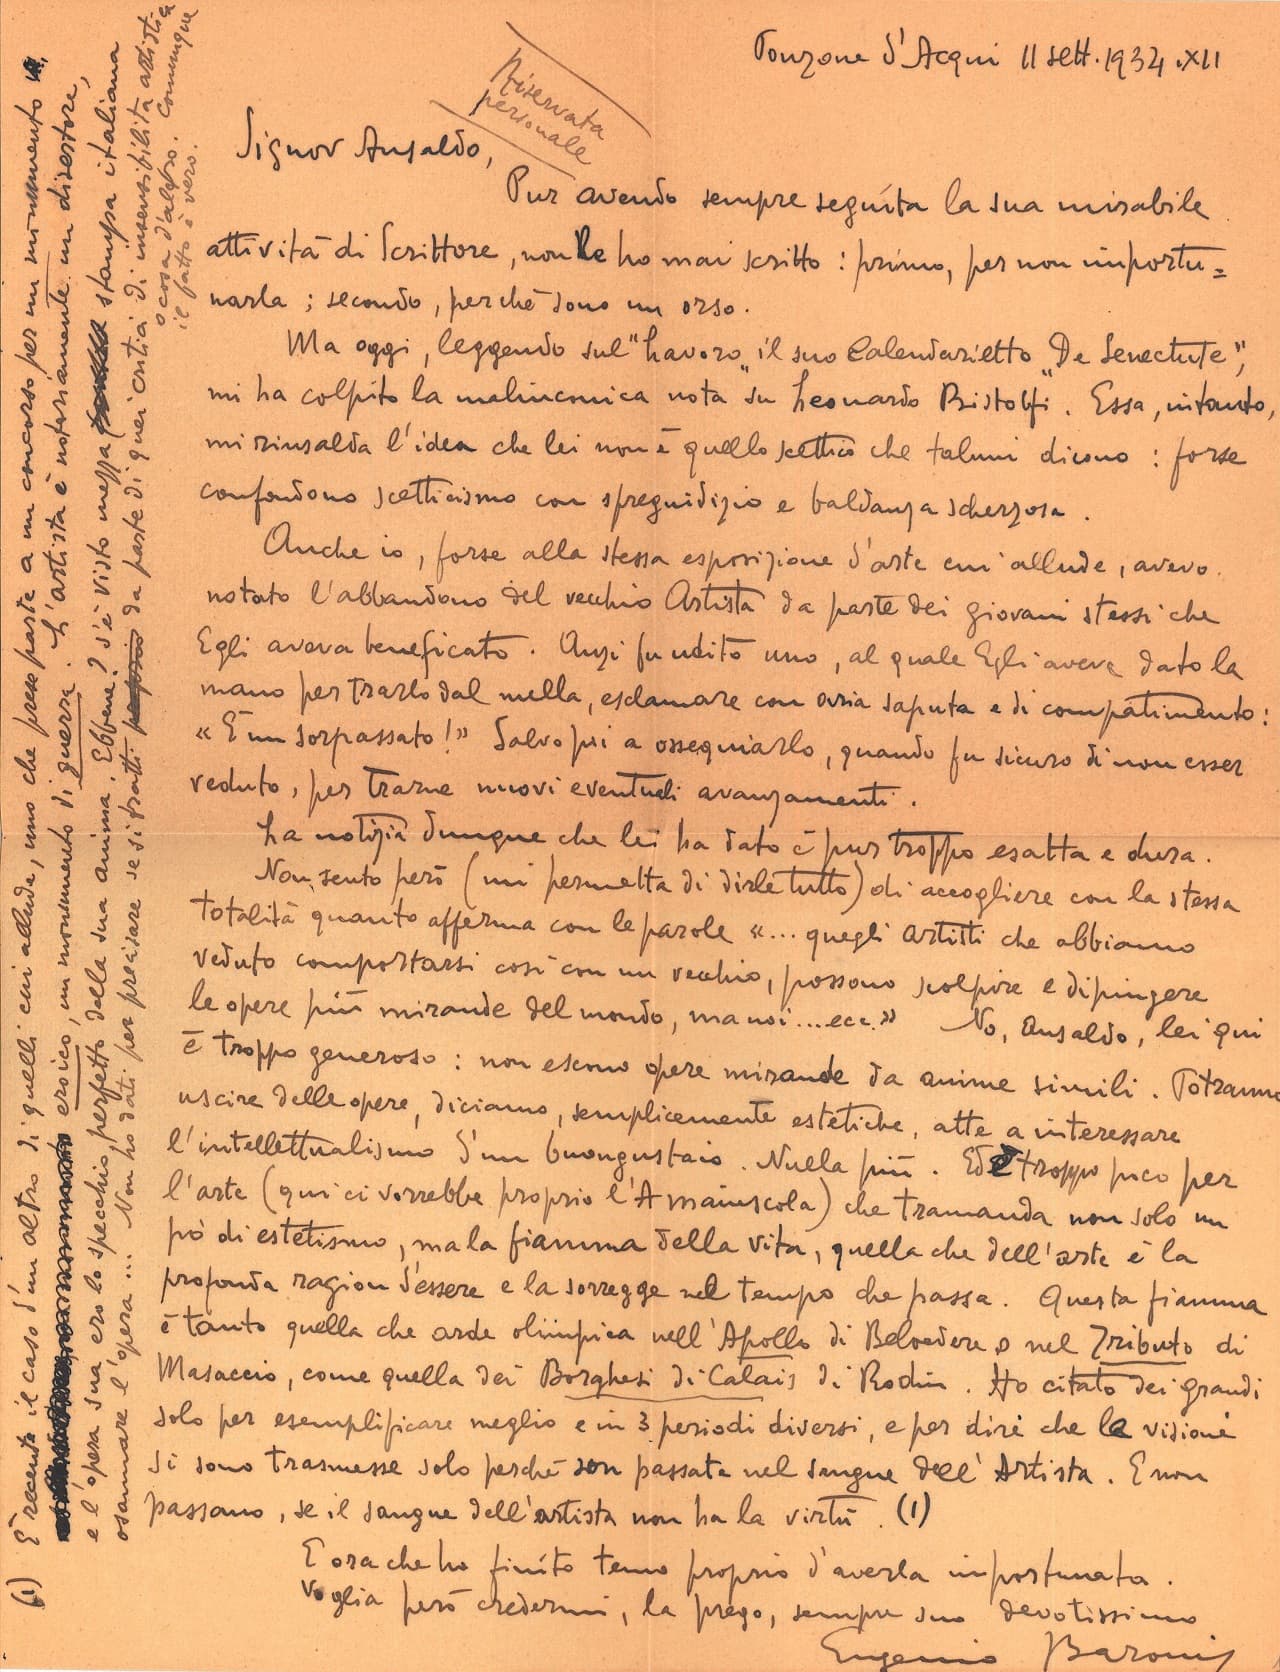 Ponzone d'Acqui 11 sett. 1934 . XII
Riservata
personale
Signor Ansaldo,
Pur avendo sempre seguíta la sua mirabile
attività di Scrittore, non Le ho mai scritto : primo, per non importu=
narla ; secondo, perchè sono un orso.
Ma oggi, leggendo sul "Lavoro„ il suo Calendarietto "De Senectute„,
mi ha colpito la malinconica nota su Leonardo Bistolfi. Essa, intanto,
mi rinsalda l'idea che lei non è quello scettico che taluni dicono : forse
confondono scetticismo con spregiudizio e baldanza scherzosa .
Anche io, forse alla stessa esposizione d'arte cui allude, avevo
notato l'abbandono del vecchio Artista da parte dei giovani stessi che
Egli aveva beneficato . Anzi fu udito uno, al quale Egli aveva dato la
mano per trarlo dal nulla, esclamare con aria saputa e di compatimento :
« È un sorpassato! » Salvo poi a ossequiarlo, quando fu sicuro di non esser
veduto, per trarne nuovi eventuali avanzamenti .
La notizia dunque che lei ha dato è pur troppo esatta e dura .
Non sento però (mi permetta di dirle tutto) di accogliere con la stessa
totalità quanto afferma con le parole «... quegli artisti che abbiamo
veduto comportarsi così con un vecchio, possono scolpire e dipingere
le opere più mirande del mondo, ma noi ... ecc.» No, Ansaldo, lei qui
è troppo generoso : non escono opere mirande da anime simili . Potranno
uscire delle opere, diciamo, semplicemente estetiche, atte a interessare
l'intellettualismo d'un buongustaio . Nulla più . Ed è troppo poco per
l'arte (qui ci vorrebbe proprio l'A maiuscola) che tramanda non solo un
pò di estetismo, ma la fiamma della vita, quella che dell'arte è la
profonda ragion d'essere e la sorregge nel tempo che passa . Questa fiamma
è tanto quella che arde olimpica nell'Apollo di Belvedere o nel Tributo di
Masaccio, come quella dei Borghesi di Calais di Rodin . Ho citato dei grandi
solo per esemplificare meglio e in 3 periodi diversi, e per dire che le visioni
si sono trasmesse solo perchè son passate nel sangue dell'Artista . E non
passano, se il sangue dell'artista non ha la virtù . (1)
E ora che ho finito temo proprio d'averla importunata .
Voglia però credermi, la prego, sempre suo devotissimo
Eugenio Baroni
(1) È recente il caso d'un altro di quelli cui allude, uno che prese parte a un concorso per un monumento
eroico, un monumento di guerra . L'artista è notoriamente un disertore,
e l'opera sua era lo specchio perfetto della sua anima. Ebbene? s'è visto mezza stampa italiana
osannare l'opera ... Non ho dati per precisare se si tratti da parte di quei critici di insensibilità artistica
o cosa d'altro. Comunque
il fatto è vero.